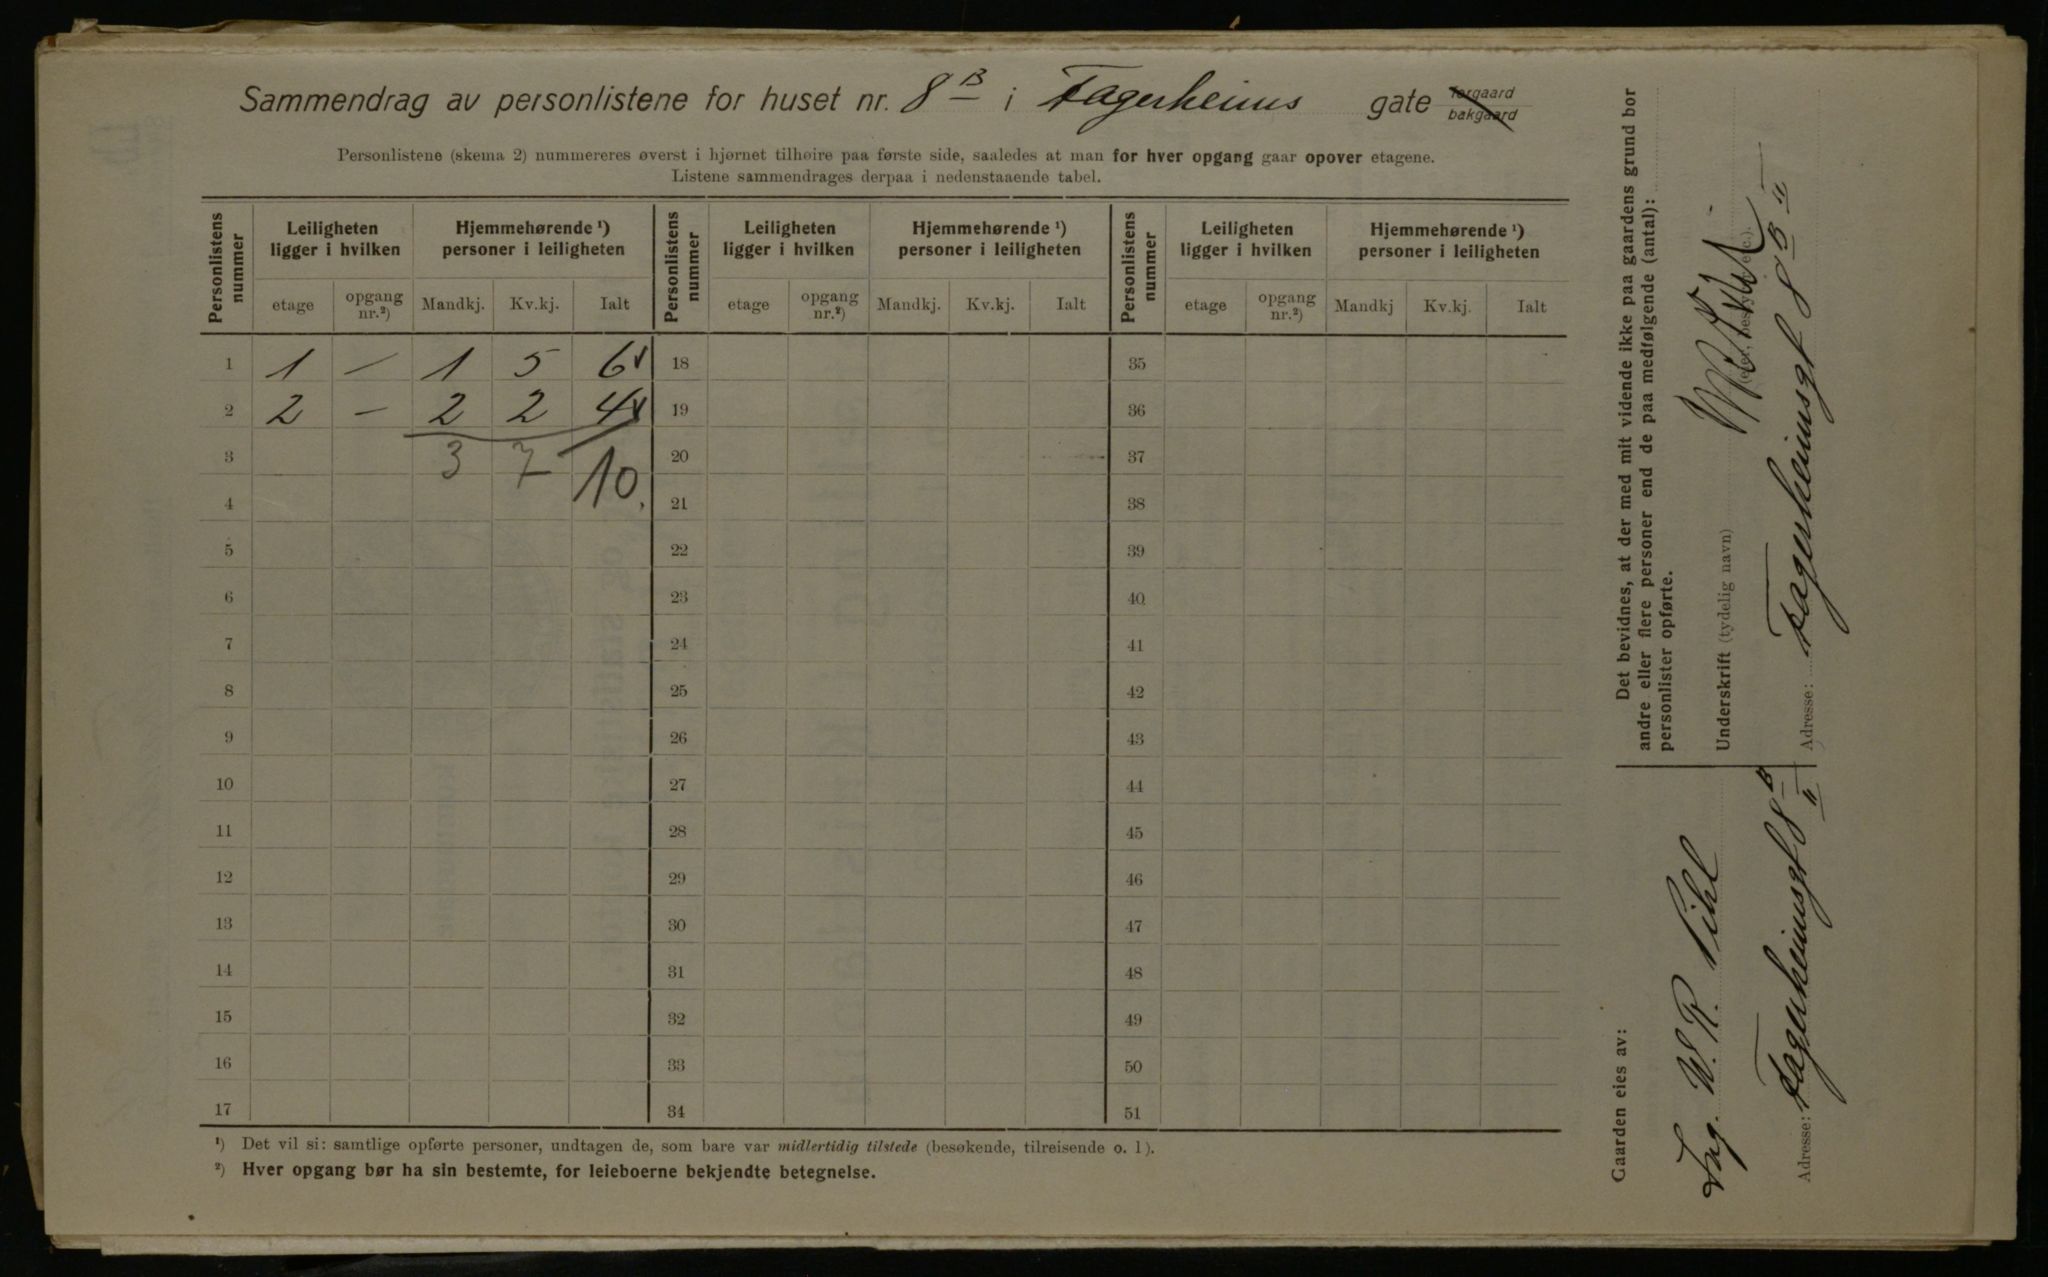 Sammendrag av personlistene for huset nr. 8 B i Fagerheims gate forgaard bakgaard
Personlistene (skema 2) nummereres øverst i hjørnet tilhøire paa første side, saaledes at man for hver opgang gaar opover etagene.
Listene sammendrages derpaa i nedenstaaende tabel.
Personlistens nummer
Leiligheten ligger i hvilken
Hjemmehørende ¹) personer i leiligheten
Personlistens nummer
Leiligheten ligger i hvilken
Hjemmehørende ¹) personer i leiligheten
Personlistens nummer
Leiligheten ligger i hvilken
Hjemmehørende ¹) personer i leiligheten
etage opgang nr.²) Mandkj. Kv.kj. Ialt etage opgang nr.²) Mandkj. Kv.kj. Ialt etage opgang nr.²) Mandkj Kv.kj. Ialt
1 1 — 1 5 6 18 35
2 2 — 2 2 4 19 36
3 3 7 10. 20 37
4 21 38
5 22 39
6 23 40
7 24 41
8 25 42
9 26 43
10 27 44
11 28 45
12 29 46
13 30 47
14 31 48
15 32 49
16 33 50
17 34 51
¹) Det vil si: samtlige opførte personer, undtagen de, som bare var midlertidig tilstede (besøkende, tilreisende o. l).
²) Hver opgang bør ha sin bestemte, for leieboerne bekjendte betegnelse.
Det bevidnes, at der med mit vidende ikke paa gaardens grund bor
andre eller flere personer end de paa medfølgende (antal):
personlister opførte.
Underskrift (tydelig navn)
Adresse: Fagerheimsgt 8 B II
Gaarden eies av:
Ing. W. R. Pihl
Adresse: Fagerheimsgt 8 B II